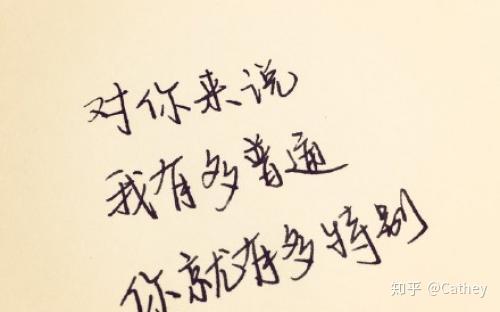 对你来说
我有多普通
你就有多特别
知乎 @Cathey